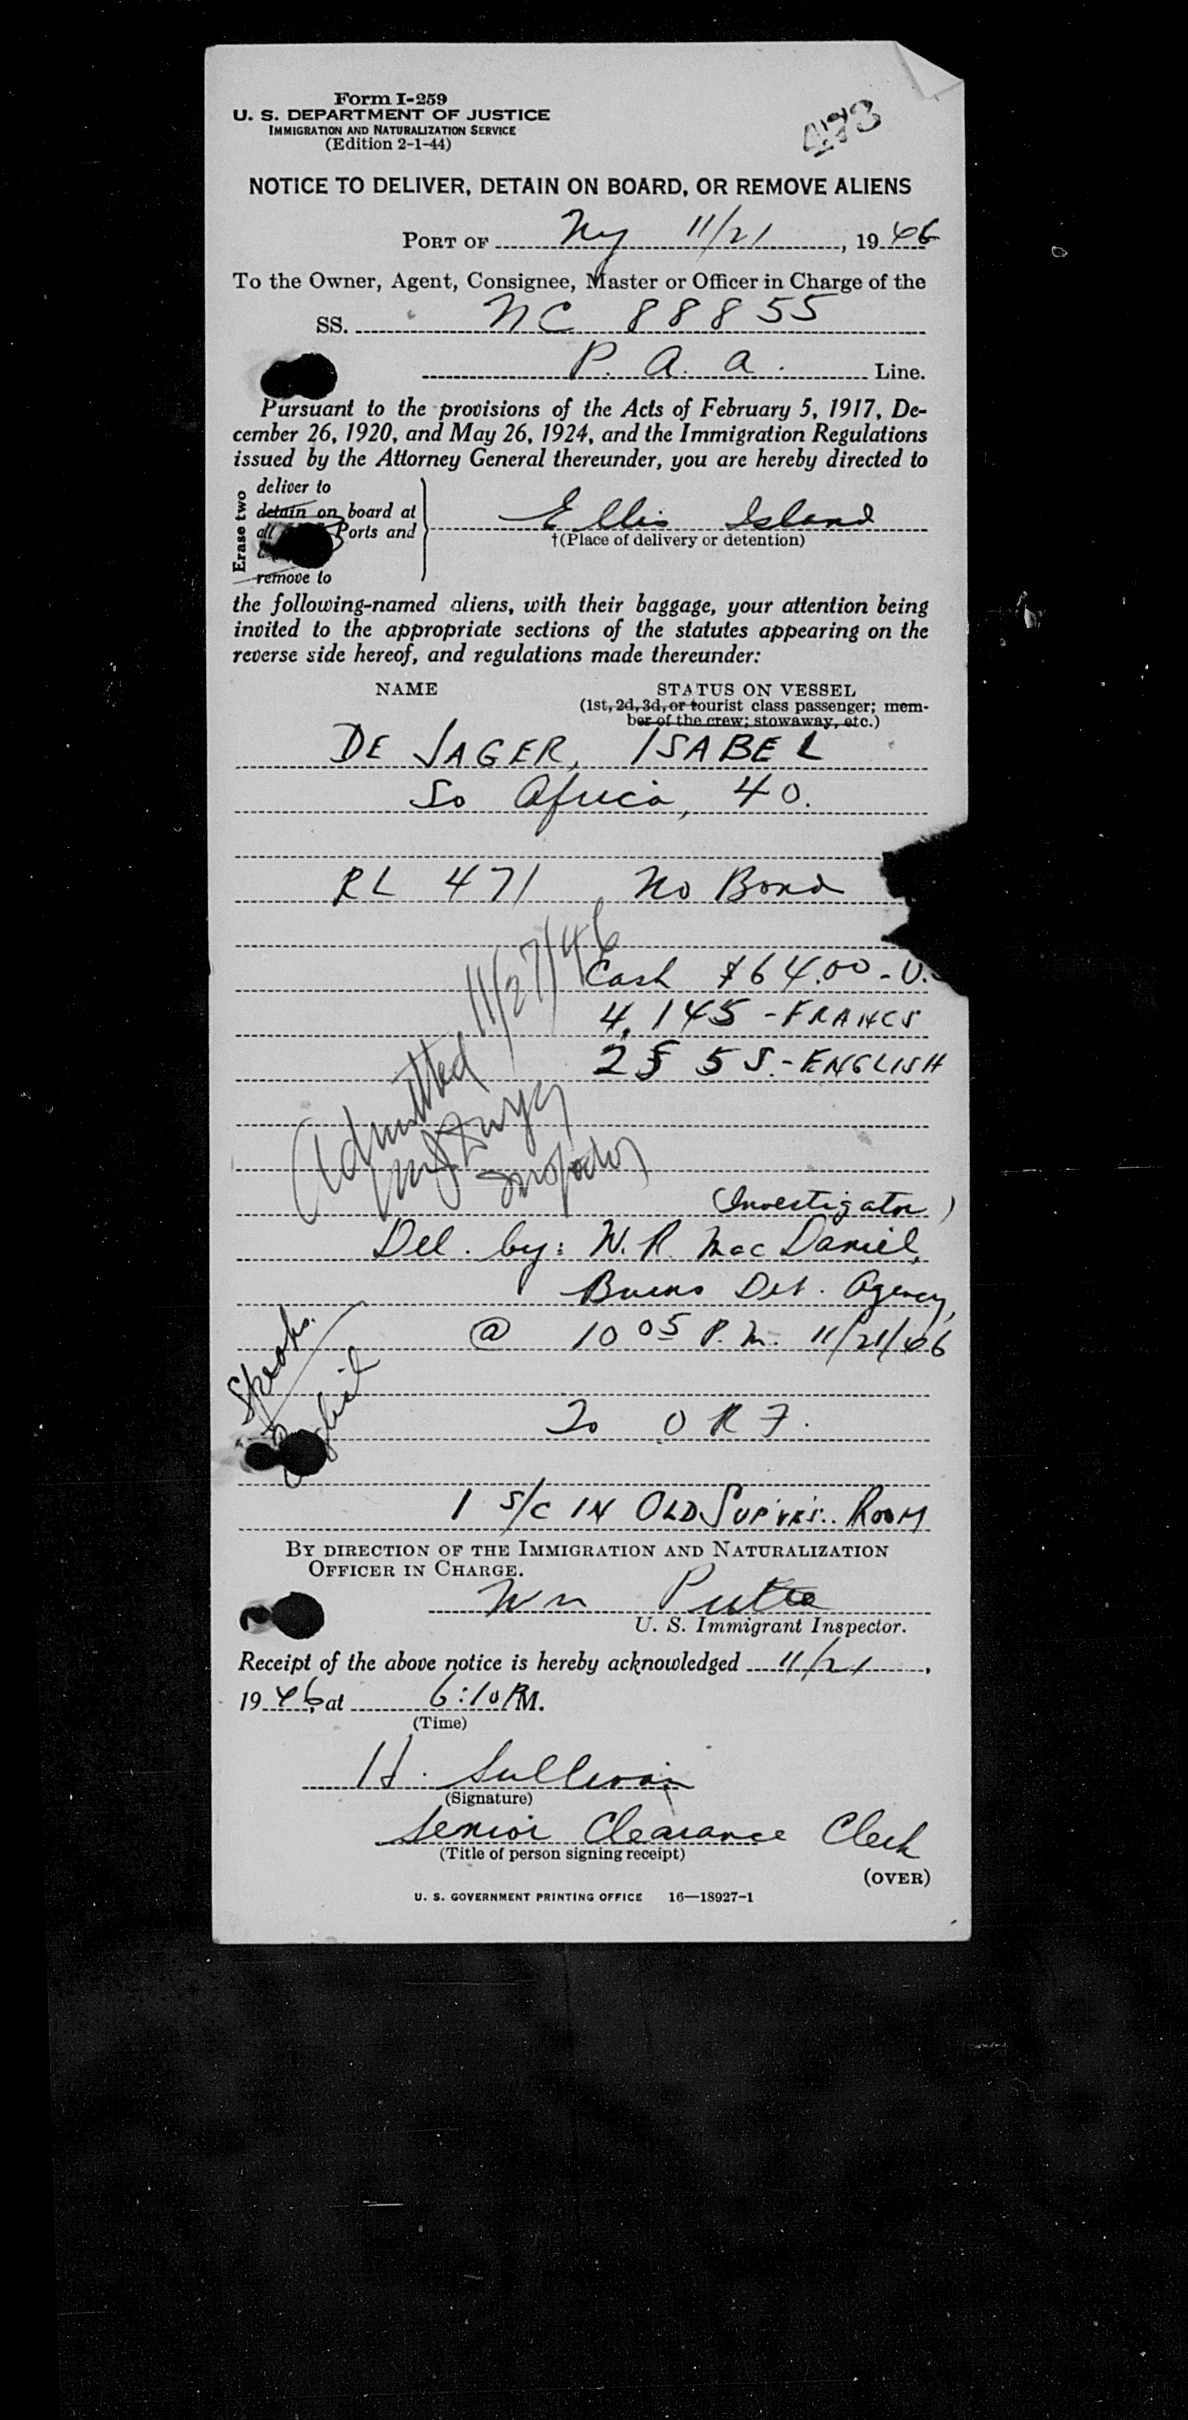 Form I-259
U. S. DEPARTMENT OF JUSTICE
IMMIGRATION AND NATURALIZATION SERVICE
(Edition 2-1-44)
473
NOTICE TO DELIVER, DETAIN ON BOARD, OR REMOVE ALIENS
PORT OF NY 11/21, 1946
To the Owner, Agent, Consignee, Master or Officer in Charge of the
SS. NC 88855
P. A. A. Line.
Pursuant to the provisions of the Acts of February 5, 1917, De-
cember 26, 1920, and May 26, 1924, and the Immigration Regulations
issued by the Attorney General thereunder, you are hereby directed to
Erase two
deliver to
detain on board at
all Ports and
remove to
Ellis Island
†(Place of delivery or detention)
the following-named aliens, with their baggage, your attention being
invited to the appropriate sections of the statutes appearing on the
reverse side hereof, and regulations made thereunder:
NAME STATUS ON VESSEL
(1st, 2d, 3d, or tourist class passenger; mem-
ber of the crew; stowaway, etc.)
DE JAGER, ISABEL
So Africa, 40.
RL 471 No Bond
Cash $64.00 - U.
4,145 - FRANCS
2 § 5 S. - ENGLISH
Admitted 11/27/46
(Investigator)
Del. by: W. R. MacDaniel,
Burns Det. Agency,
@ 10 05 P.M. 11/21/46
Speaks
English
To O R F.
1 S/C IN OLD SUP'VR'S. ROOM
BY DIRECTION OF THE IMMIGRATION AND NATURALIZATION
OFFICER IN CHARGE.
Wm
U. S. Immigrant Inspector.
Receipt of the above notice is hereby acknowledged 11/21,
1946, at 6:10 P.M.
(Time)
H. Sullivan
(Signature)
Senior Clearance Clerk
(Title of person signing receipt)
(OVER)
U. S. GOVERNMENT PRINTING OFFICE 16—18927-1